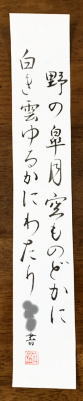 野の皐月空ものどかに
白き雲ゆるかにわたり
書